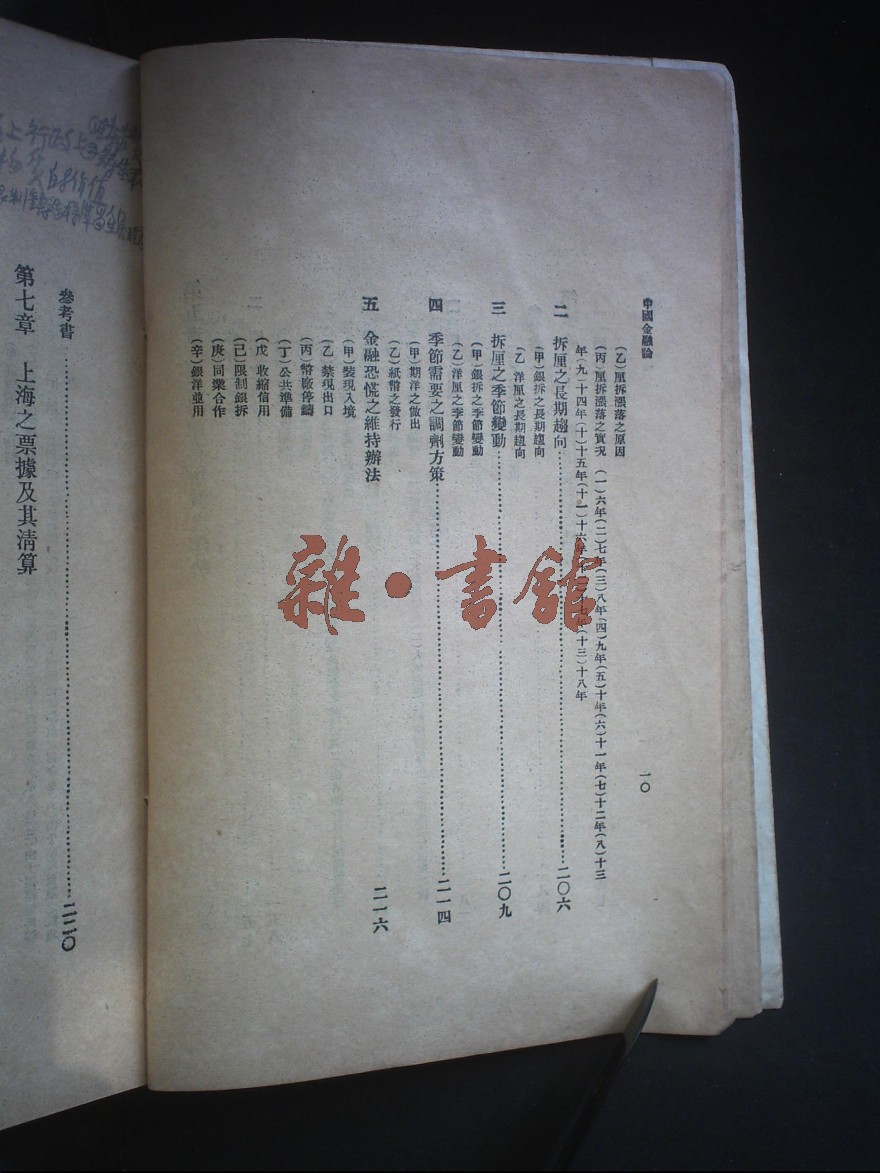 中國金融論
一〇
(乙)厘拆漲落之原因
(丙)厘拆漲落之實況 (一)六年(二)七年(三)八年(四)九年(五)十年(六)十一年(七)十二年(八)十三
年(九)十四年(十)十五年(十一)十六年(十二)十七年(十三)十八年
二 拆厘之長期趨向……二〇六
(甲)銀拆之長期趨向
(乙)洋厘之長期趨向
三 拆厘之季節變動……二〇九
(甲)銀拆之季節變動
(乙)洋厘之季節變動
四 季節需要之調劑方策……二一四
(甲)期洋之做出
(乙)紙幣之發行
五 金融恐慌之維持辦法 二一六
(甲)裝現入境
(乙)禁現出口
(丙)幣廠停鑄
(丁)公共準備
(戊)收縮信用
(己)限制銀拆
(庚)同業合作
(辛)銀洋並用
參考書……二二〇
第七章 上海之票據及其清算
雜·書館